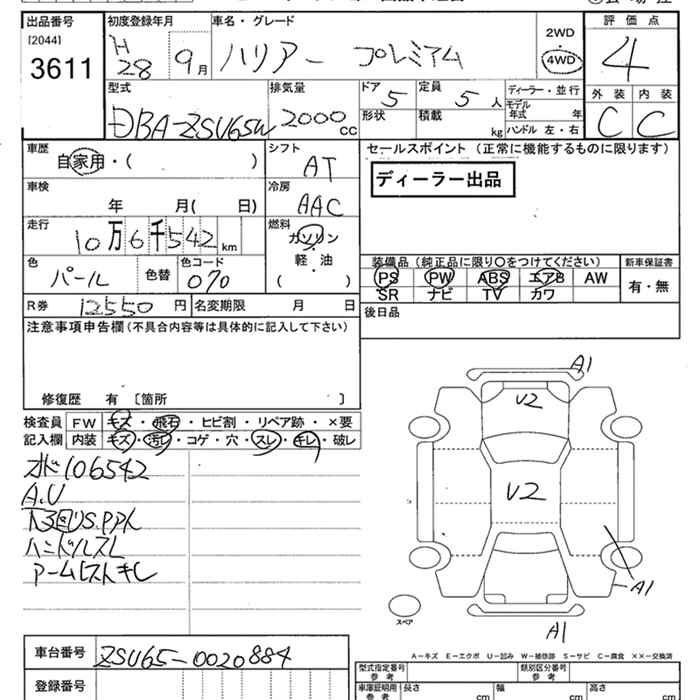 出品番号
[2044]
3611
初度登録年月
H
28 9月
車名・グレード
ハリアー プレミアム
2WD
・
4WD
評価点
4
外装 内装
C C
型式
DBA-ZSU65W
排気量
2000cc
ドア
5
定員
5人
形状
積載
kg
ディーラー・並行
モデル
年式 年
ハンドル 左・右
車歴
自家用・( )
シフト
AT
車検
年 月( 日)
冷房
AAC
走行
10万6千542km
燃料
ガソリン
軽・油
( )
色
パール
色替
色コード
070
R券 12550円
名変期限 月 日
セールスポイント (正常に機能するものに限ります)
ディーラー出品
装備品(純正品に限り○をつけてください)
新車保証書
PS PW ABS エアB AW
SR ナビ TV カワ
有・無
後日品
注意事項申告欄(不具合内容等は具体的に記入して下さい)
修復歴 有 〔箇所 〕
検査員
記入欄
FW キズ・飛石・ヒビ割・リペア跡・×要
内装 キズ・汚レ・コゲ・穴・スレ・キレ・破レ
オド106542
A.U
ハンドルスレ
アームレストキレ
A1
U2
U2
A1
A1
スペア
A-キズ E-エクボ U-凹み W-補修跡 S-サビ C-腐食 XX-交換済
車台番号
ZSU65-0020884
登録番号
型式指定番号
参考
類別区分番号
参考
車庫証明用
参考
長さ cm
幅 cm
高さ cm